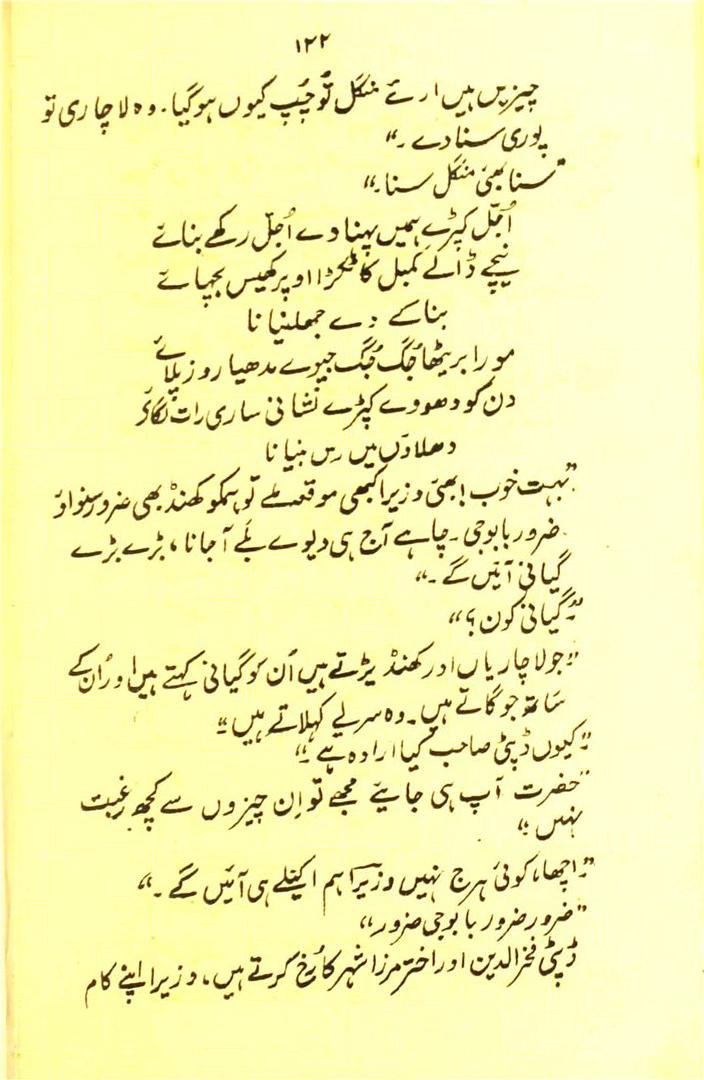 ۱۲۲
چیزیں ہیں ارے منگل تُو چُپ کیوں ہوگیا۔ وہ لا چاری تو
پوری سنا دے ۔"
"سنا بھئی منگل سنا۔"
اُجل کپڑے ہمیں پہنا دے اُجل رکھے بنائے
نیچے ڈالے کمبل کا ٹکڑا اوپر کھیس بچھائے
بنا کے دے جھلنیا نا
مورا بریٹھا جُگ جُگ جیوے مدھیا روز پلائے
دن کو دھووے کپڑے نشانی ساری رات لگائے
دھلاؤں میں رس نیا نا
"بہت خوب! بھئی وزیرا کبھی موقعہ ملے تو ہمکو کھنڈ بھی ضرور سنواؤ
ضرور بابوجی۔ چاہے آج ہی دیوے بلے آجانا، بڑے بڑے
گیانی آئیں گے۔"
"گیانی کون؟"
"جو لاچاریاں اور کھنڈ پڑتے ہیں اُن کو گیانی کہتے ہیں اور اُن کے
ساتھ جو گاتے ہیں۔ وہ سرلے کہلاتے ہیں"
"کیوں ڈپٹی صاحب کیا ارادہ ہے۔"
"حضرت آپ ہی جایئے مجھے تو اِن چیزوں سے کچھ رغبت
نہیں"
"اچھا، کوئی ہرج نہیں وزیرا ہم اکیلے ہی آئیں گے۔"
"ضرور ضرور بابوجی ضرور"
ڈپٹی فخرالدین اور اختر مرزا شہر کا رُخ کرتے ہیں، وزیرا اپنے کام